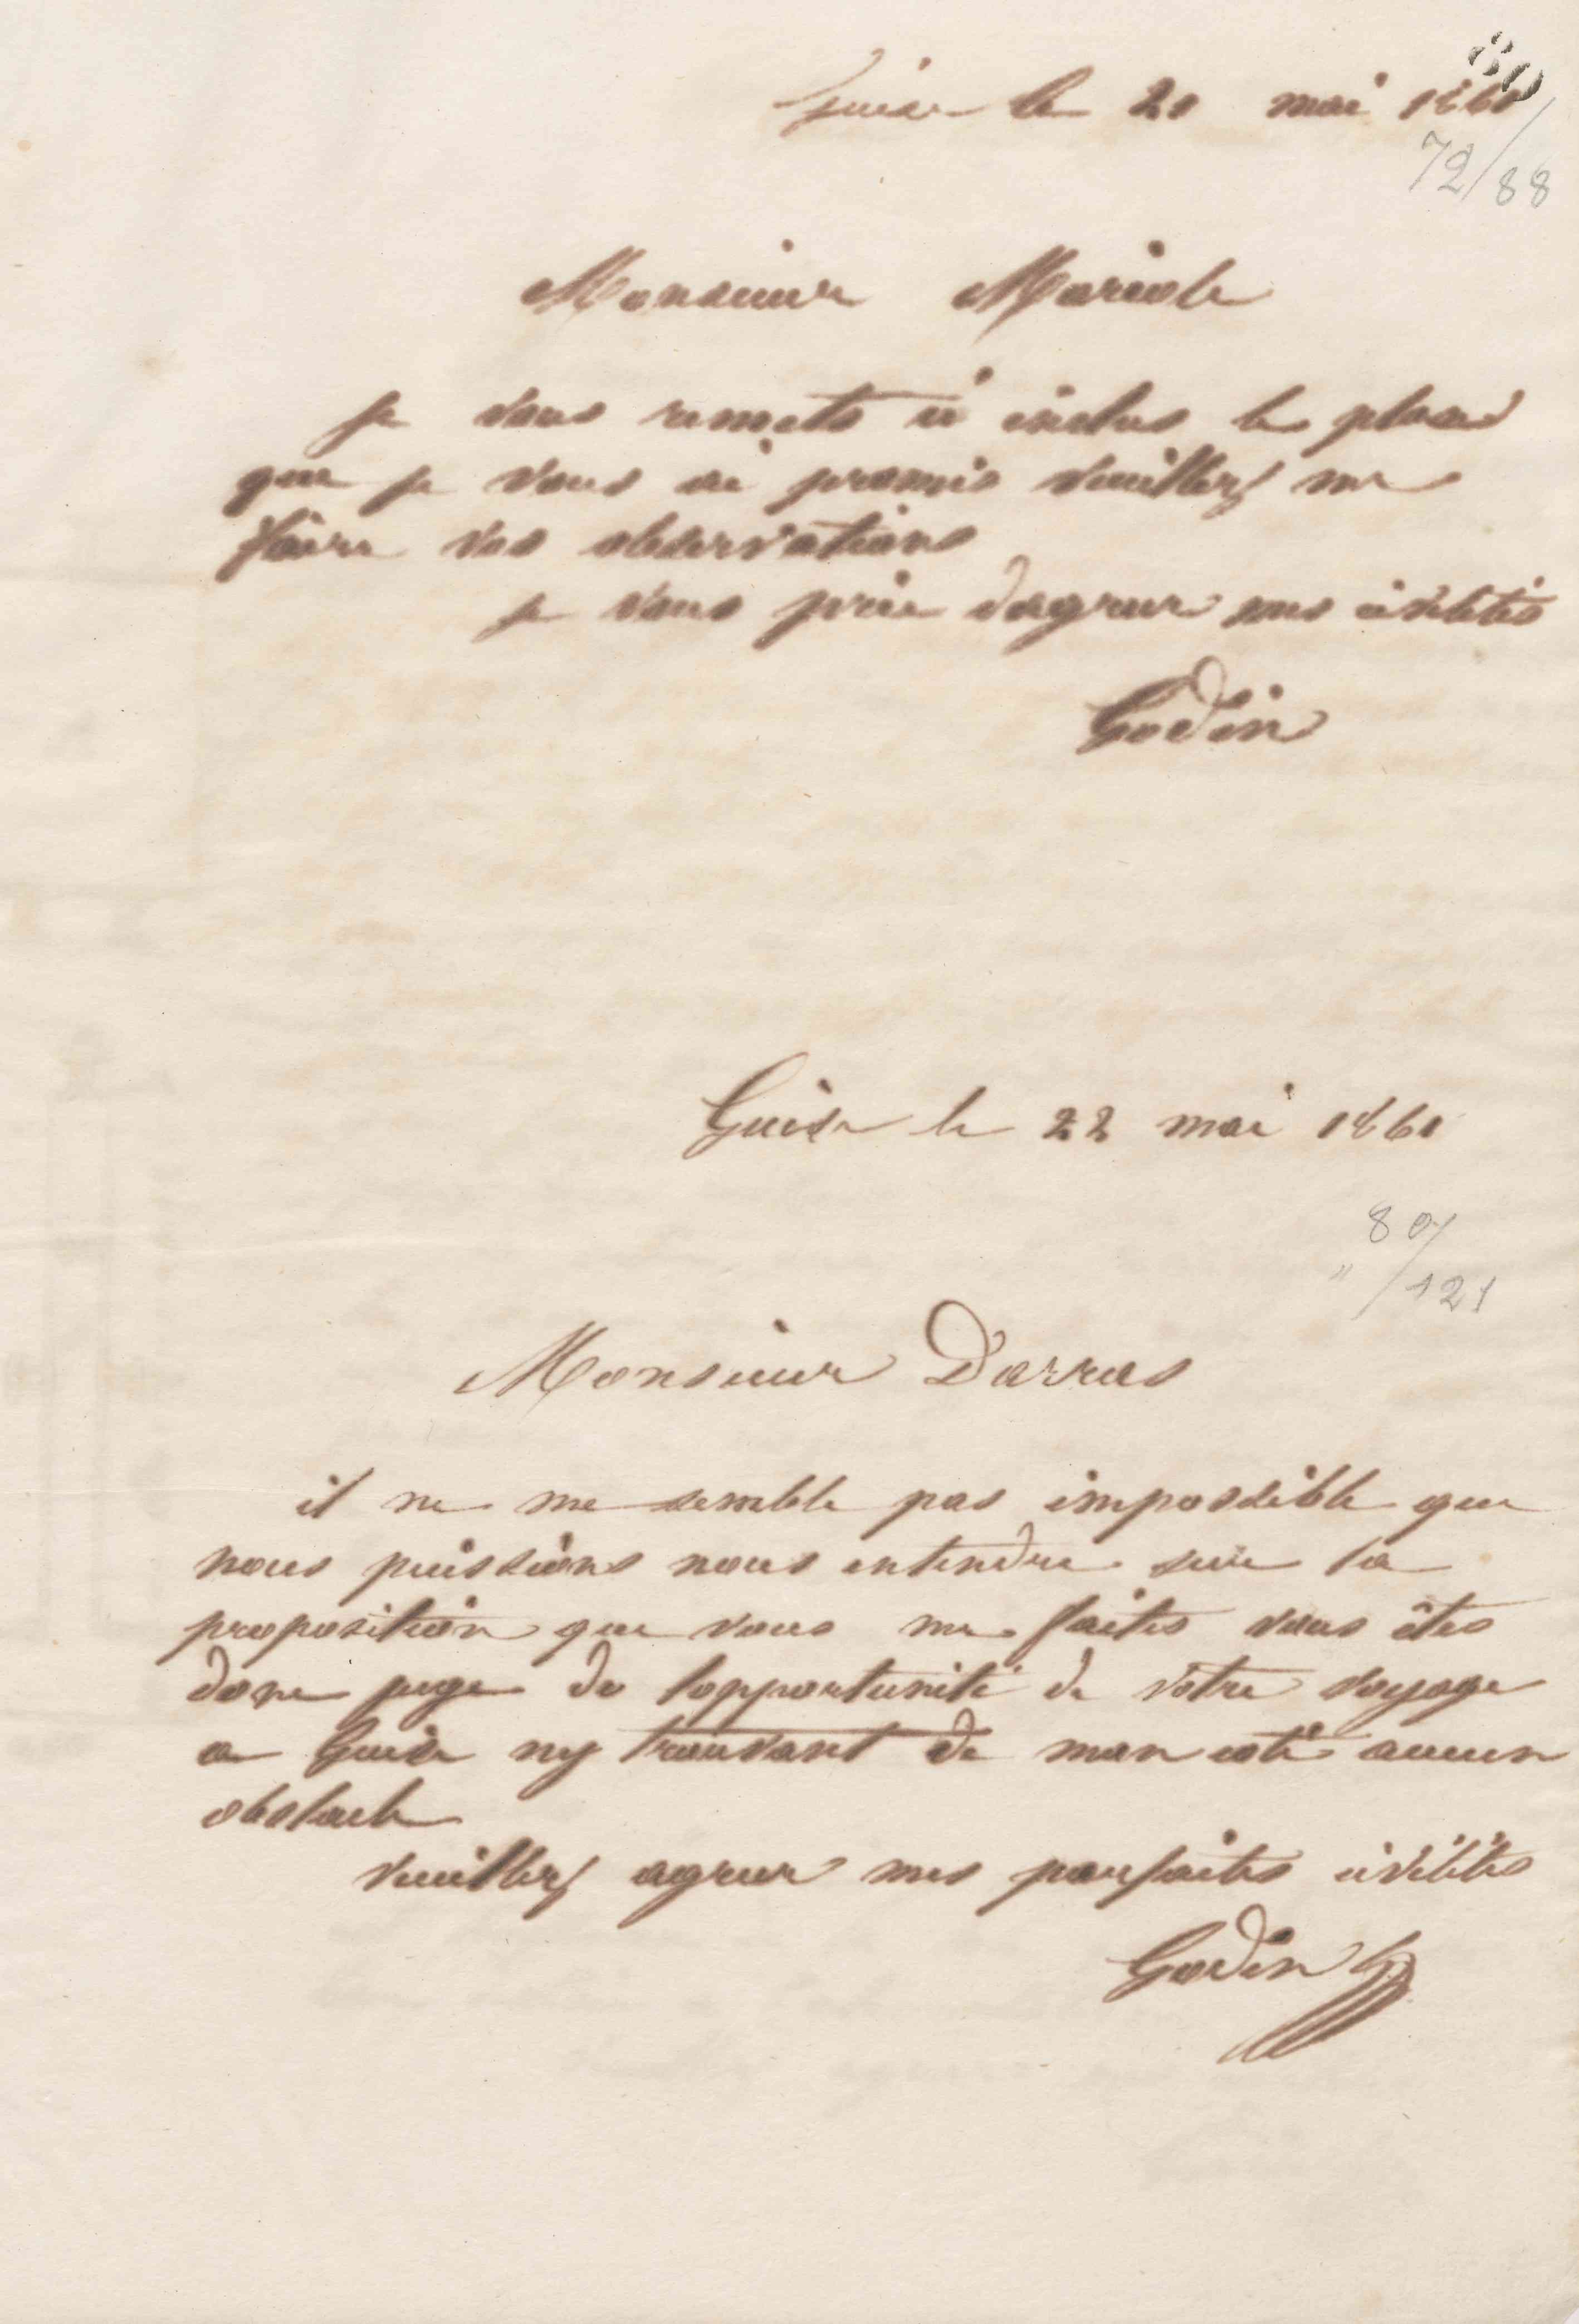 80
Guise le 21 mai 1861
72/88
Monsieur Mariole
je vous remets ci inclus le plan
que je vous ai promis veuillez me
faire vos observations
je vous prie dagreer mes civilités
Godin
Guise le 22 mai 1861
80/121
Monsieur Darras
il ne me semble pas impossible que
nous puissions nous entendre sur la
proposition que vous me faites vous êtes
donc juge de lopportunité de votre voyage
a Guise ny trouvant de mon coté aucun
obstacle
veuillez agreer mes parfaites civilités
Godin